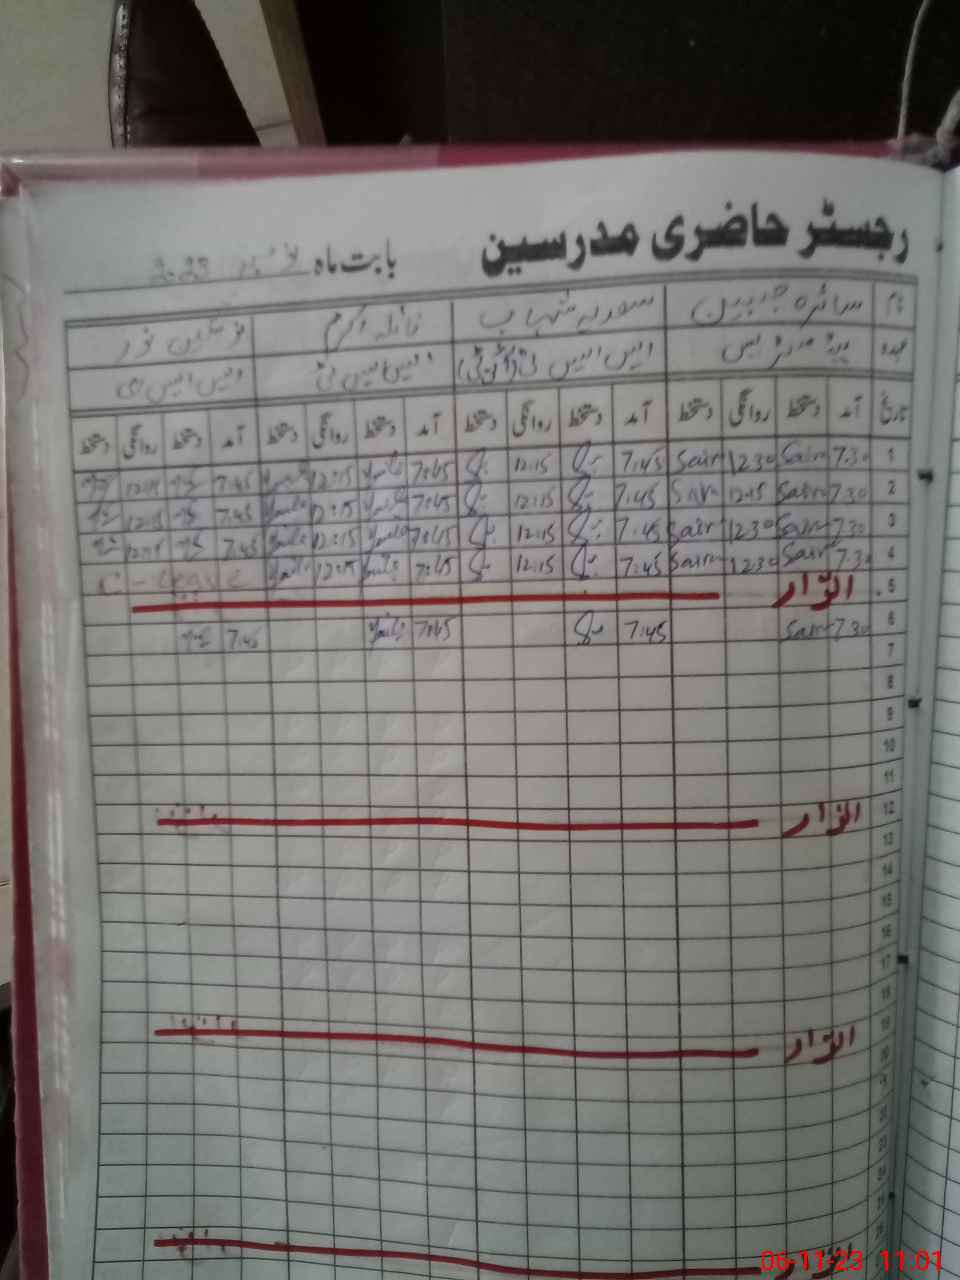 رجسٹر حاضری مدرسین بابت ماہ نومبر 2023
نام سائرہ جبین سعدیہ شہاب نائلہ اکرم نوشین نور
عہدہ ہیڈ مسٹریس ایس ایس ٹی ایس ایس ٹی
تاریخ آمد دستخط روانگی دستخط آمد دستخط روانگی دستخط آمد دستخط روانگی دستخط آمد دستخط روانگی دستخط
1 7.30 Sair 12.30 Sair 7.45 12:15 7:45 12:15 7:45 12:15
2 7.30 Sair 12:15 Sair 7.45 12:15 7:45 12:15 7:45 12:15
3 7.30 Sair 12.30 Sair 7.45 12:15 7:45 12:15 7:45 12:15
4 7.30 Sair 12.30 Sair 7:45 12:15 7:45 12:15 C-leave
5 اتوار
6 7.30 Sair 7:45 7:45 7:45
7
8
9
10
11
12 اتوار
13
14
15
16
17
18
19 اتوار
20
21
22
23
24
25
26
06-11-23 11:01